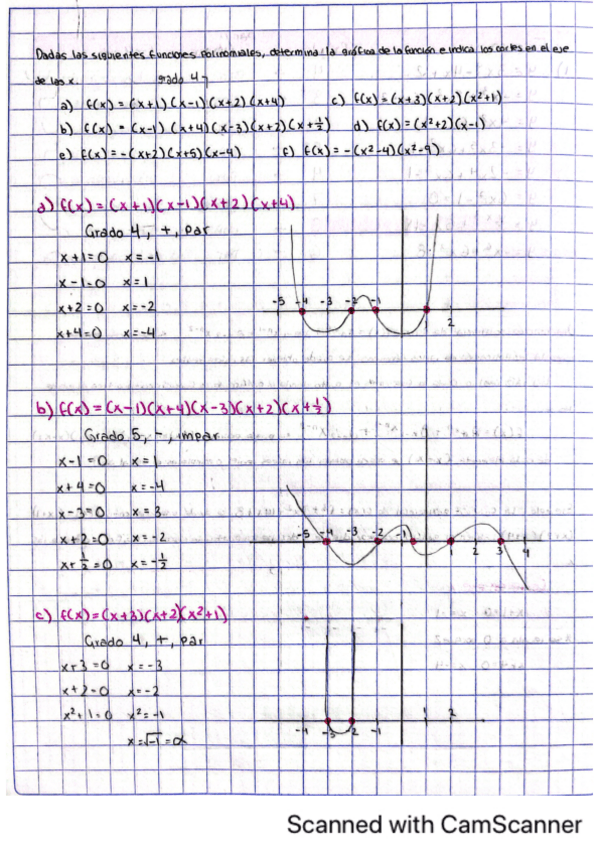 Dadas las siguientes funciones polinomiales, determina la gráfica de la función e indica los cortes en el eje
de las x. grado 4
a) f(x) = (x+1)(x-1)(x+2)(x+4) c) f(x) = (x+3)(x+2)(x²+1)
b) f(x) = (x-1)(x+4)(x-3)(x+2)(x+½) d) f(x) = (x²+2)(x-1)
e) f(x) = -(x+2)(x+5)(x-4) f) f(x) = -(x²-4)(x²-9)
a) f(x) = (x+1)(x-1)(x+2)(x+4)
Grado 4, +, par
x+1=0 x=-1
x-1=0 x=1
x+2=0 x=-2
x+4=0 x=-4
-5 -4 -3 -2 -1 2
b) f(x) = (x-1)(x+4)(x-3)(x+2)(x+½)
Grado 5, -, impar
x-1=0 x=1
x+4=0 x=-4
x-3=0 x=3
x+2=0 x=-2
x+½=0 x=-½
-5 -4 -3 -2 -1 1 2 3 4
c) f(x)=(x+3)(x+2)(x²+1)
Grado 4, +, par
x+3=0 x=-3
x+2=0 x=-2
x²+1=0 x²=-1
x=√-1=α
-4 -3 -2 -1 1 2
Scanned with CamScanner